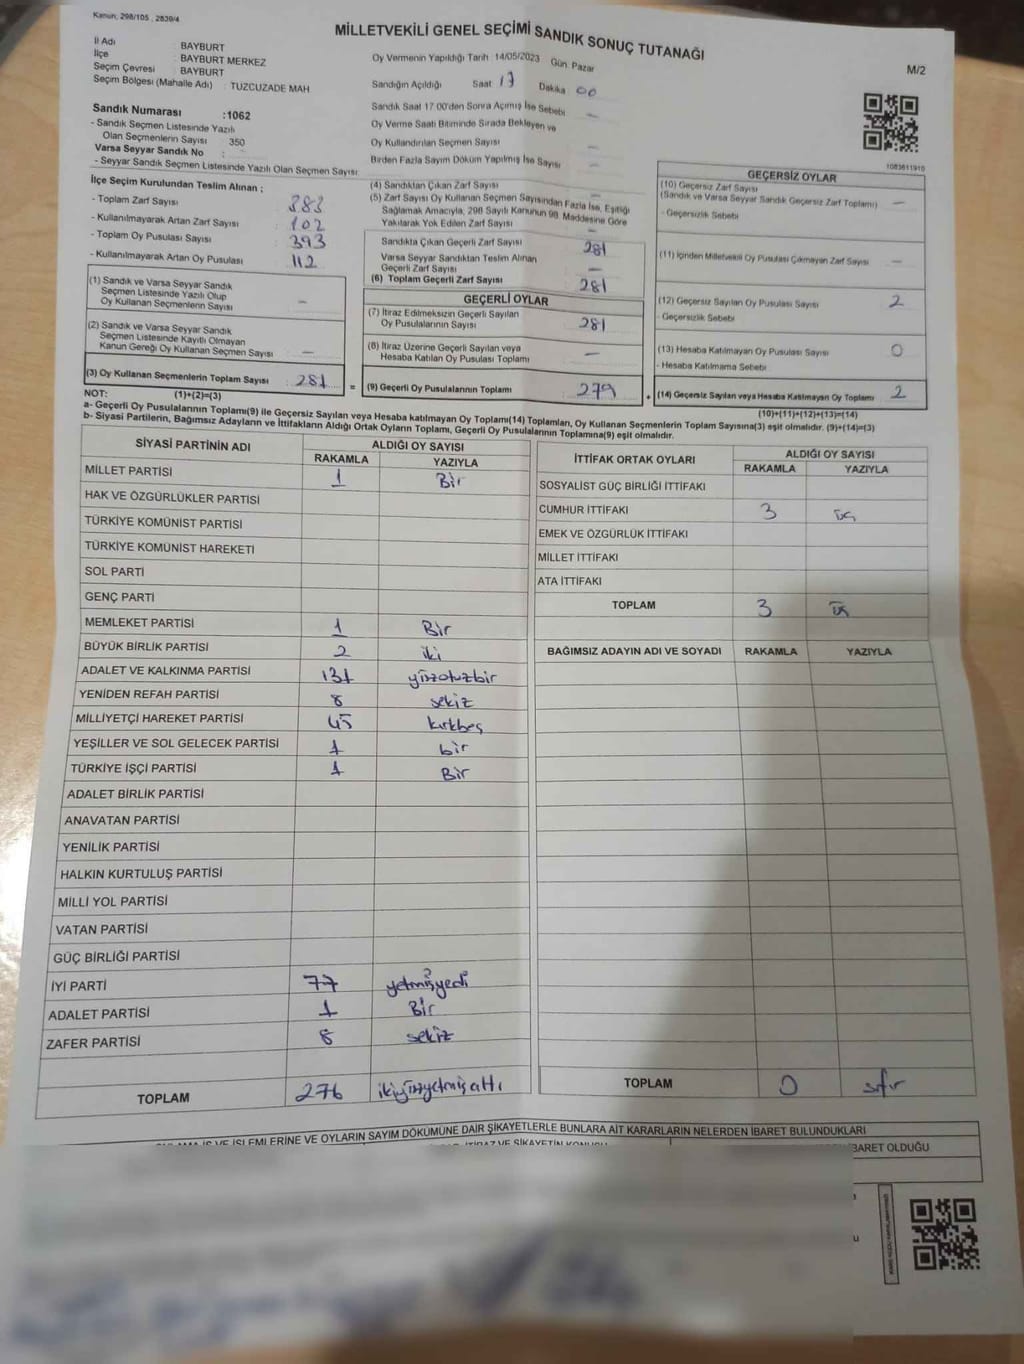 Kanun; 298/105 , 2839/4
MİLLETVEKİLİ GENEL SEÇİMİ SANDIK SONUÇ TUTANAĞI
M/2
İl Adı : BAYBURT
İlçe : BAYBURT MERKEZ
Seçim Çevresi : BAYBURT
Seçim Bölgesi (Mahalle Adı) : TUZCUZADE MAH
Oy Vermenin Yapıldığı Tarih 14/05/2023 Gün Pazar
Sandığın Açıldığı Saat 17 Dakika 00
Sandık Saat 17 00'den Sonra Açımış İse Sebebi —
Oy Verme Saati Bitiminde Sırada Bekleyen ve
Oy Kullandırılan Seçmen Sayısı —
Birden Fazla Sayım Döküm Yapılmış İse Sayısı —
Sandık Numarası :1062
- Sandık Seçmen Listesinde Yazılı
Olan Seçmenlerin Sayısı 350
Varsa Seyyar Sandık No :
- Seyyar Sandık Seçmen Listesinde Yazılı Olan Seçmen Sayısı:
1083611910
İlçe Seçim Kurulundan Teslim Alınan ;
- Toplam Zarf Sayısı : 383
- Kullanılmayarak Artan Zarf Sayısı : 102
- Toplam Oy Pusulası Sayısı : 393
- Kullanılmayarak Artan Oy Pusulası : 112
(1) Sandık ve Varsa Seyyar Sandık
Seçmen Listesinde Yazılı Olup
Oy Kullanan Seçmenlerin Sayısı : —
(2) Sandık ve Varsa Seyyar Sandık
Seçmen Listesinde Kayıtlı Olmayan
Kanun Gereği Oy Kullanan Seçmen Sayısı : —
(3) Oy Kullanan Seçmenlerin Toplam Sayısı : 281 =
(1)+(2)=(3)
(4) Sandıktan Çıkan Zarf Sayısı —
(5) Zarf Sayısı Oy Kullanan Seçmen Sayısından Fazla İse, Eşitliği
Sağlamak Amacıyla, 298 Sayılı Kanunun 98. Maddesine Göre
Yakılarak Yok Edilen Zarf Sayısı —
Sandıkta Çıkan Geçerli Zarf Sayısı 281
Varsa Seyyar Sandıktan Teslim Alınan
Geçerli Zarf Sayısı —
(6) Toplam Geçerli Zarf Sayısı 281
GEÇERLİ OYLAR
(7) İtiraz Edilmeksizin Geçerli Sayılan
Oy Pusulalarının Sayısı 281
(8) İtiraz Üzerine Geçerli Sayılan veya
Hesaba Katılan Oy Pusulası Toplamı —
(9) Geçerli Oy Pusulalarının Toplamı 279 +
GEÇERSİZ OYLAR
(10) Geçersiz Zarf Sayısı
(Sandık ve Varsa Seyyar Sandık Geçersiz Zarf Toplamı) —
- Geçersizlik Sebebi
(11) İçinden Milletvekili Oy Pusulası Çıkmayan Zarf Sayısı —
(12) Geçersiz Sayılan Oy Pusulası Sayısı 2
- Geçersizlik Sebebi
(13) Hesaba Katılmayan Oy Pusulası Sayısı 0
- Hesaba Katılmama Sebebi
(14) Geçersiz Sayılan veya Hesaba Katılmayan Oy Toplamı 2
(10)+(11)+(12)+(13)=(14)
NOT:
a- Geçerli Oy Pusulalarının Toplamı(9) ile Geçersiz Sayılan veya Hesaba katılmayan Oy Toplamı(14) Toplamları, Oy Kullanan Seçmenlerin Toplam Sayısına(3) eşit olmalıdır. (9)+(14)=(3)
b- Siyasi Partilerin, Bağımsız Adayların ve İttifakların Aldığı Ortak Oyların Toplamı, Geçerli Oy Pusulalarının Toplamına(9) eşit olmalıdır.
SİYASİ PARTİNİN ADI ALDIĞI OY SAYISI
RAKAMLA YAZIYLA
MİLLET PARTİSİ 1 Bir
HAK VE ÖZGÜRLÜKLER PARTİSİ
TÜRKİYE KOMÜNİST PARTİSİ
TÜRKİYE KOMÜNİST HAREKETİ
SOL PARTİ
GENÇ PARTİ
MEMLEKET PARTİSİ 1 Bir
BÜYÜK BİRLİK PARTİSİ 2 iki
ADALET VE KALKINMA PARTİSİ 131 yüzotuzbir
YENİDEN REFAH PARTİSİ 8 sekiz
MİLLİYETÇİ HAREKET PARTİSİ 45 kırkbeş
YEŞİLLER VE SOL GELECEK PARTİSİ 1 bir
TÜRKİYE İŞÇİ PARTİSİ 1 Bir
ADALET BİRLİK PARTİSİ
ANAVATAN PARTİSİ
YENİLİK PARTİSİ
HALKIN KURTULUŞ PARTİSİ
MİLLİ YOL PARTİSİ
VATAN PARTİSİ
GÜÇ BİRLİĞİ PARTİSİ
İYİ PARTİ 77 yetmişyedi
ADALET PARTİSİ 1 Bir
ZAFER PARTİSİ 8 sekiz
TOPLAM 276 ikiyüzyetmişaltı
İTTİFAK ORTAK OYLARI ALDIĞI OY SAYISI
RAKAMLA YAZIYLA
SOSYALİST GÜÇ BİRLİĞİ İTTİFAKI
CUMHUR İTTİFAKI 3 üç
EMEK VE ÖZGÜRLÜK İTTİFAKI
MİLLET İTTİFAKI
ATA İTTİFAKI
TOPLAM 3 üç
BAĞIMSIZ ADAYIN ADI VE SOYADI RAKAMLA YAZIYLA
TOPLAM 0 sıfır
İŞ VE İŞLEMLERİNE VE OYLARIN SAYIM DÖKÜMÜNE DAİR ŞİKAYETLERLE BUNLARA AİT KARARLARIN NELERDEN İBARET BULUNDUKLARI
İTİRAZ VE ŞİKAYETİN KONUSU
İBARET OLDUĞU